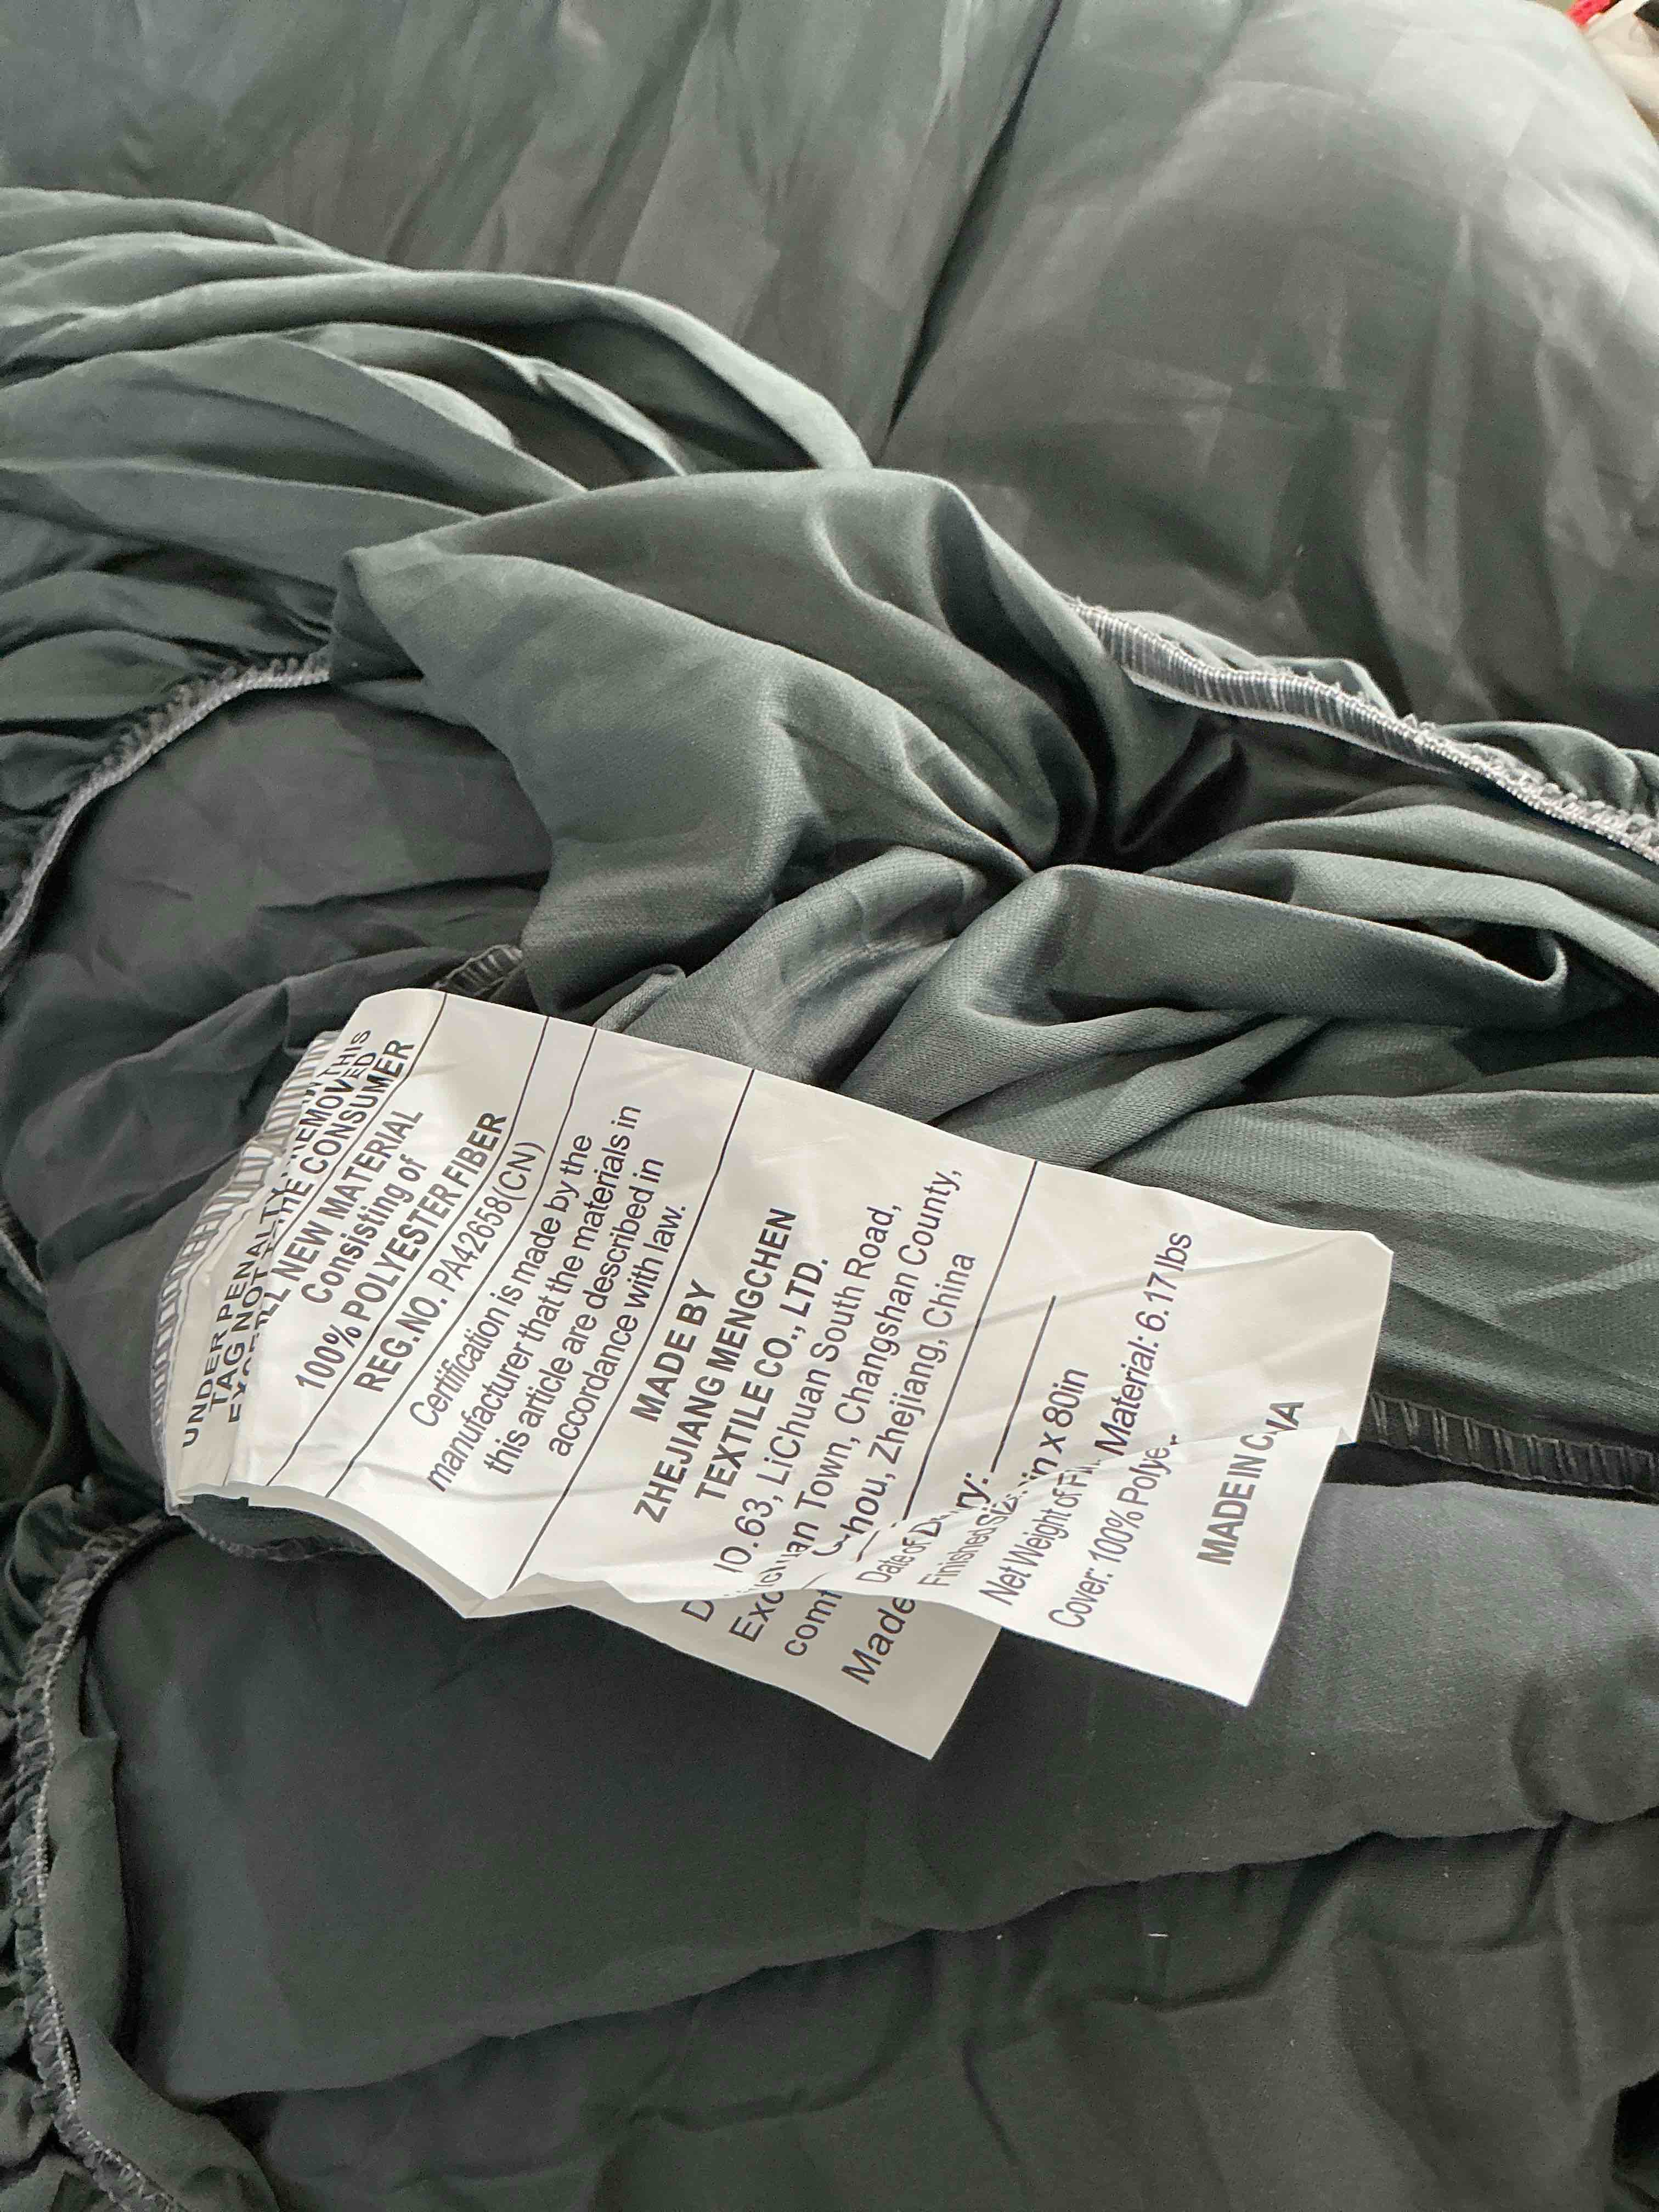 UNDER PENALTY THIS
TAG NOT REMOVED
THE CONSUMER
NEW MATERIAL
Consisting of
100% POLYESTER FIBER
REG.NO. PA42658(CN)
Certification is made by the
manufacturer that the materials in
this article are described in
accordance with law.
MADE BY
ZHEJIANG MENGCHEN
TEXTILE CO., LTD.
63, LiChuan South Road,
Town, Changshan County,
Zhejiang, China
Date of
Finished in x 80in
Net Weight of Material: 6.17 lbs
Cover: 100%
MADE IN
Made